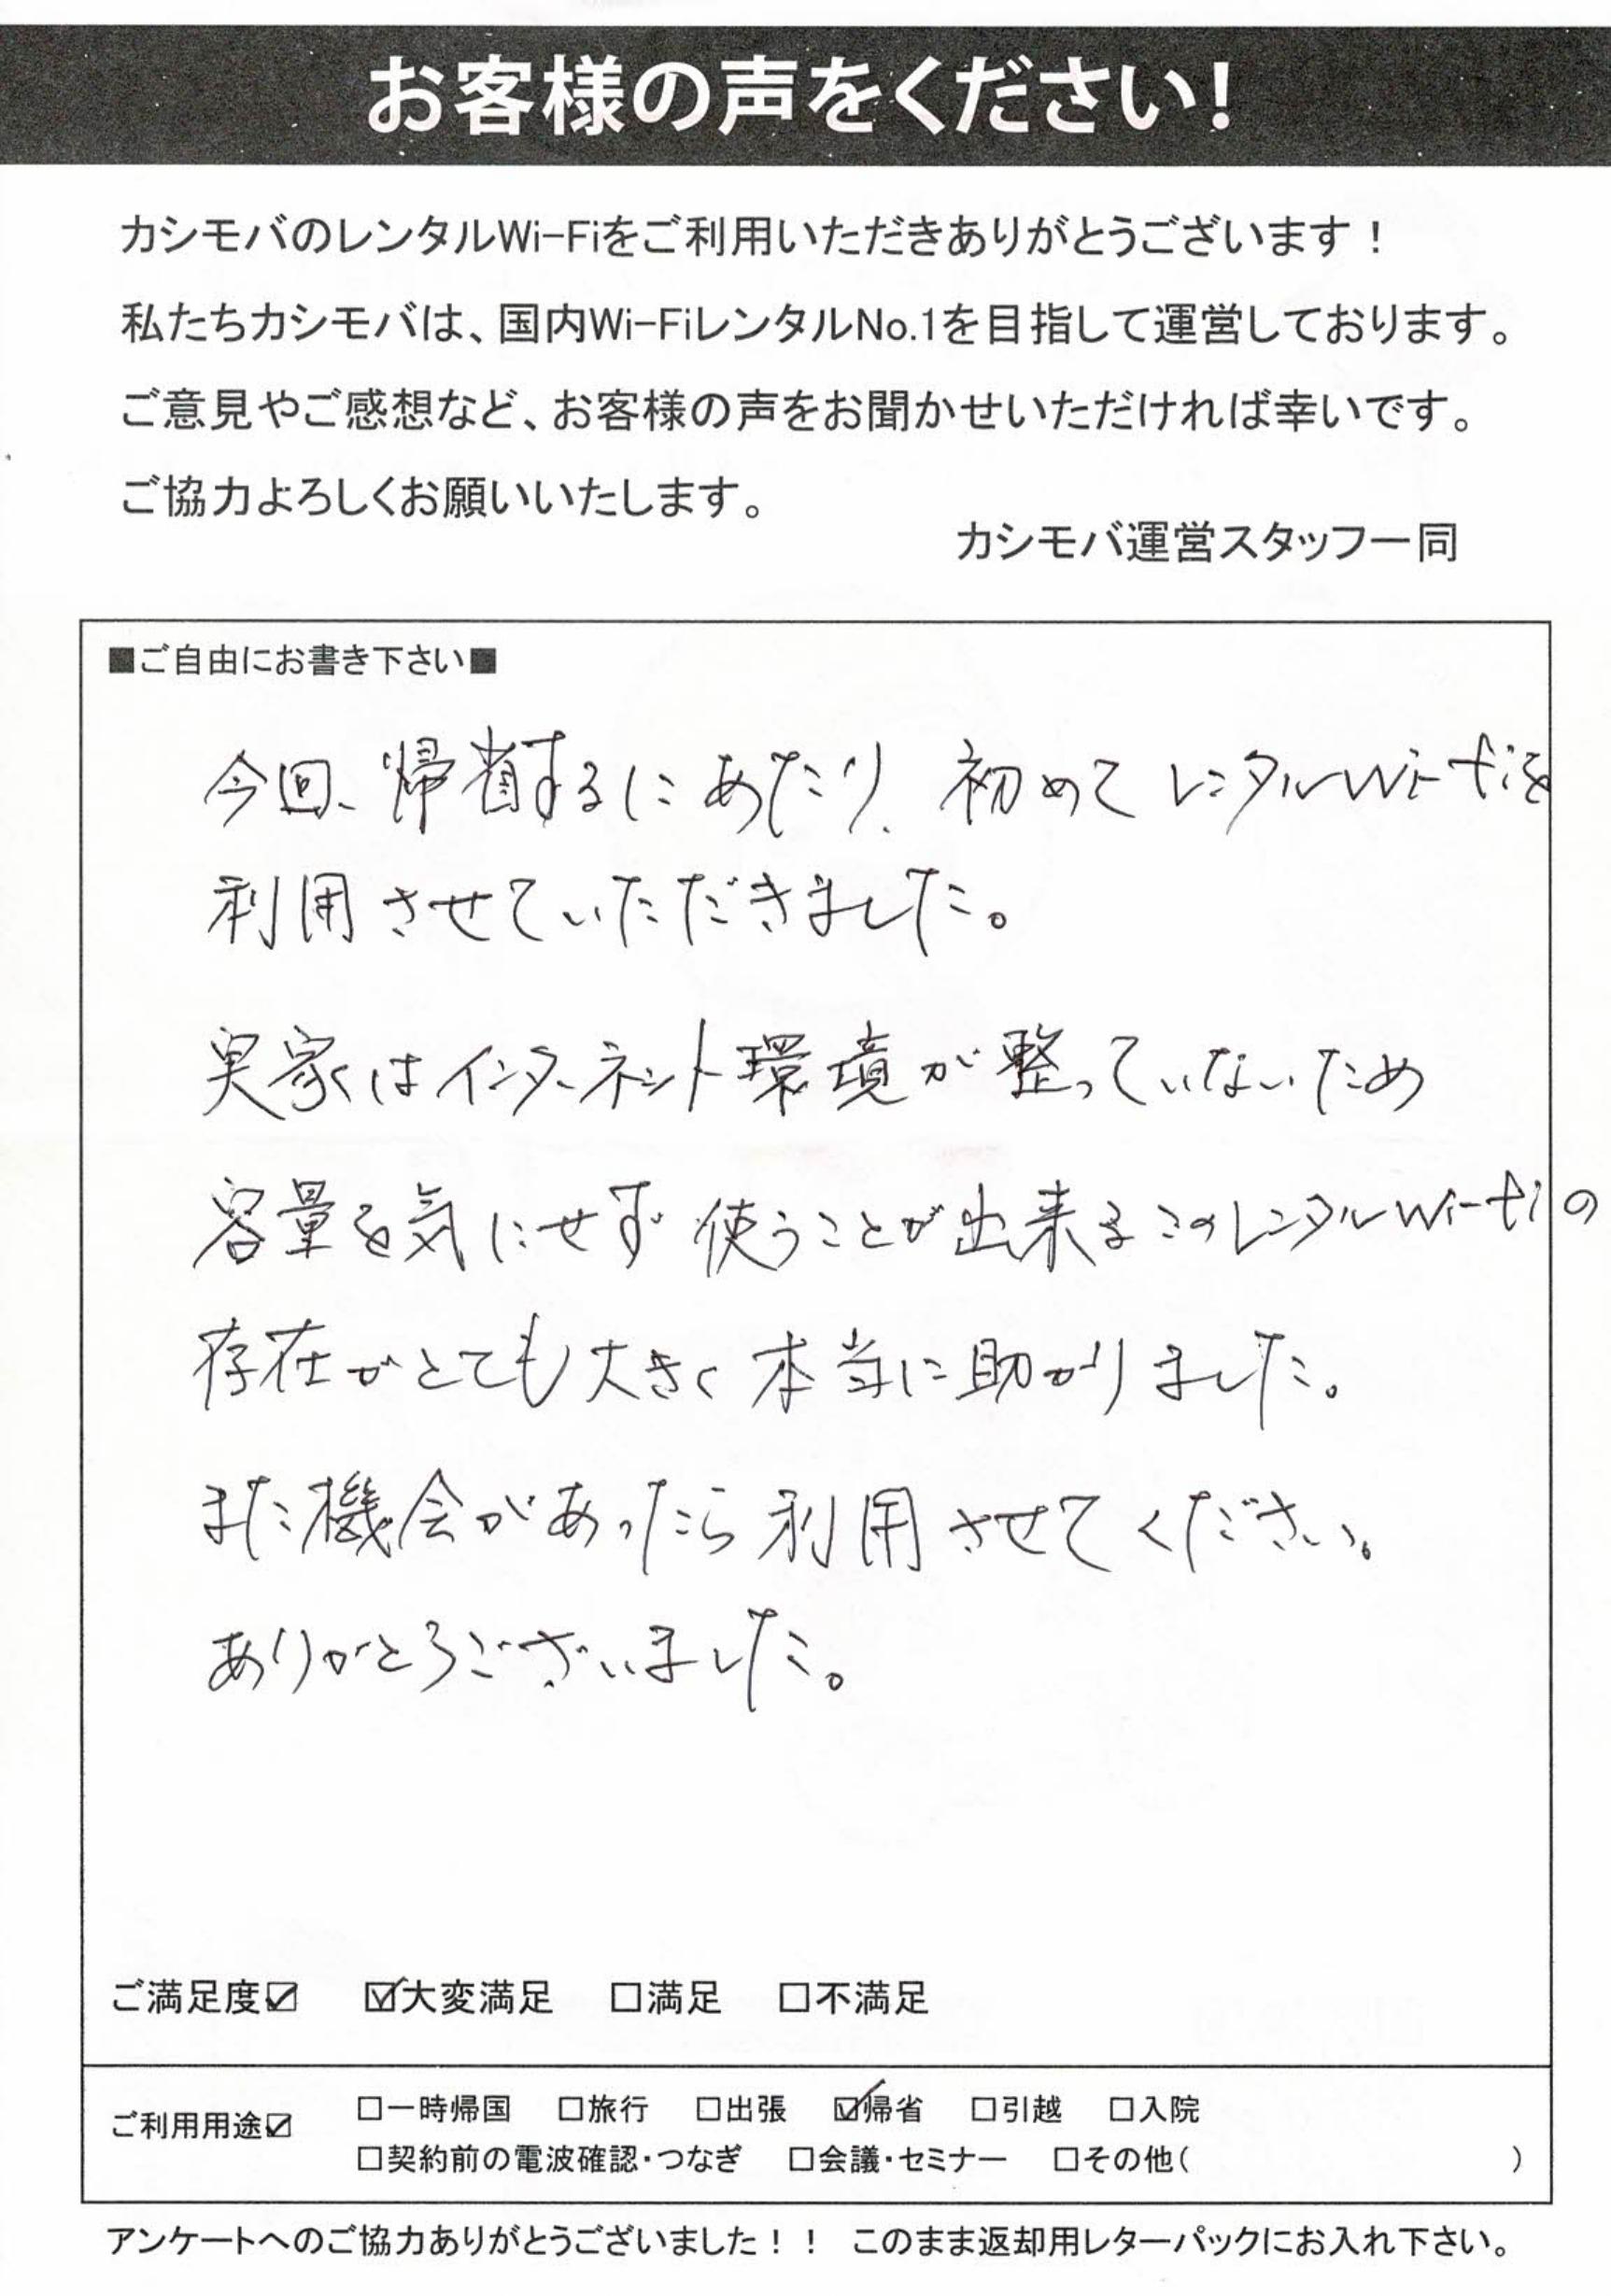 お客様の声をください!
カシモバのレンタルWi-Fiをご利用いただきありがとうございます！
私たちカシモバは、国内Wi-FiレンタルNo.1を目指して運営しております。
ご意見やご感想など、お客様の声をお聞かせいただければ幸いです。
ご協力よろしくお願いいたします。
カシモバ運営スタッフ一同
■ご自由にお書き下さい■
今回、帰省するにあたり、初めてレンタルWi-Fiを
利用させていただきました。
実家はインターネット環境が整っていないため
容量を気にせず使うことが出来るこのレンタルWi-Fiの
存在がとても大きく本当に助かりました。
また機会があったら利用させてください。
ありがとうございました。
ご満足度☑ ☑大変満足 □満足 □不満足
ご利用用途☑ □一時帰国 □旅行 □出張 ☑帰省 □引越 □入院
□契約前の電波確認・つなぎ □会議・セミナー □その他( )
アンケートへのご協力ありがとうございました！！ このまま返却用レターパックにお入れ下さい。